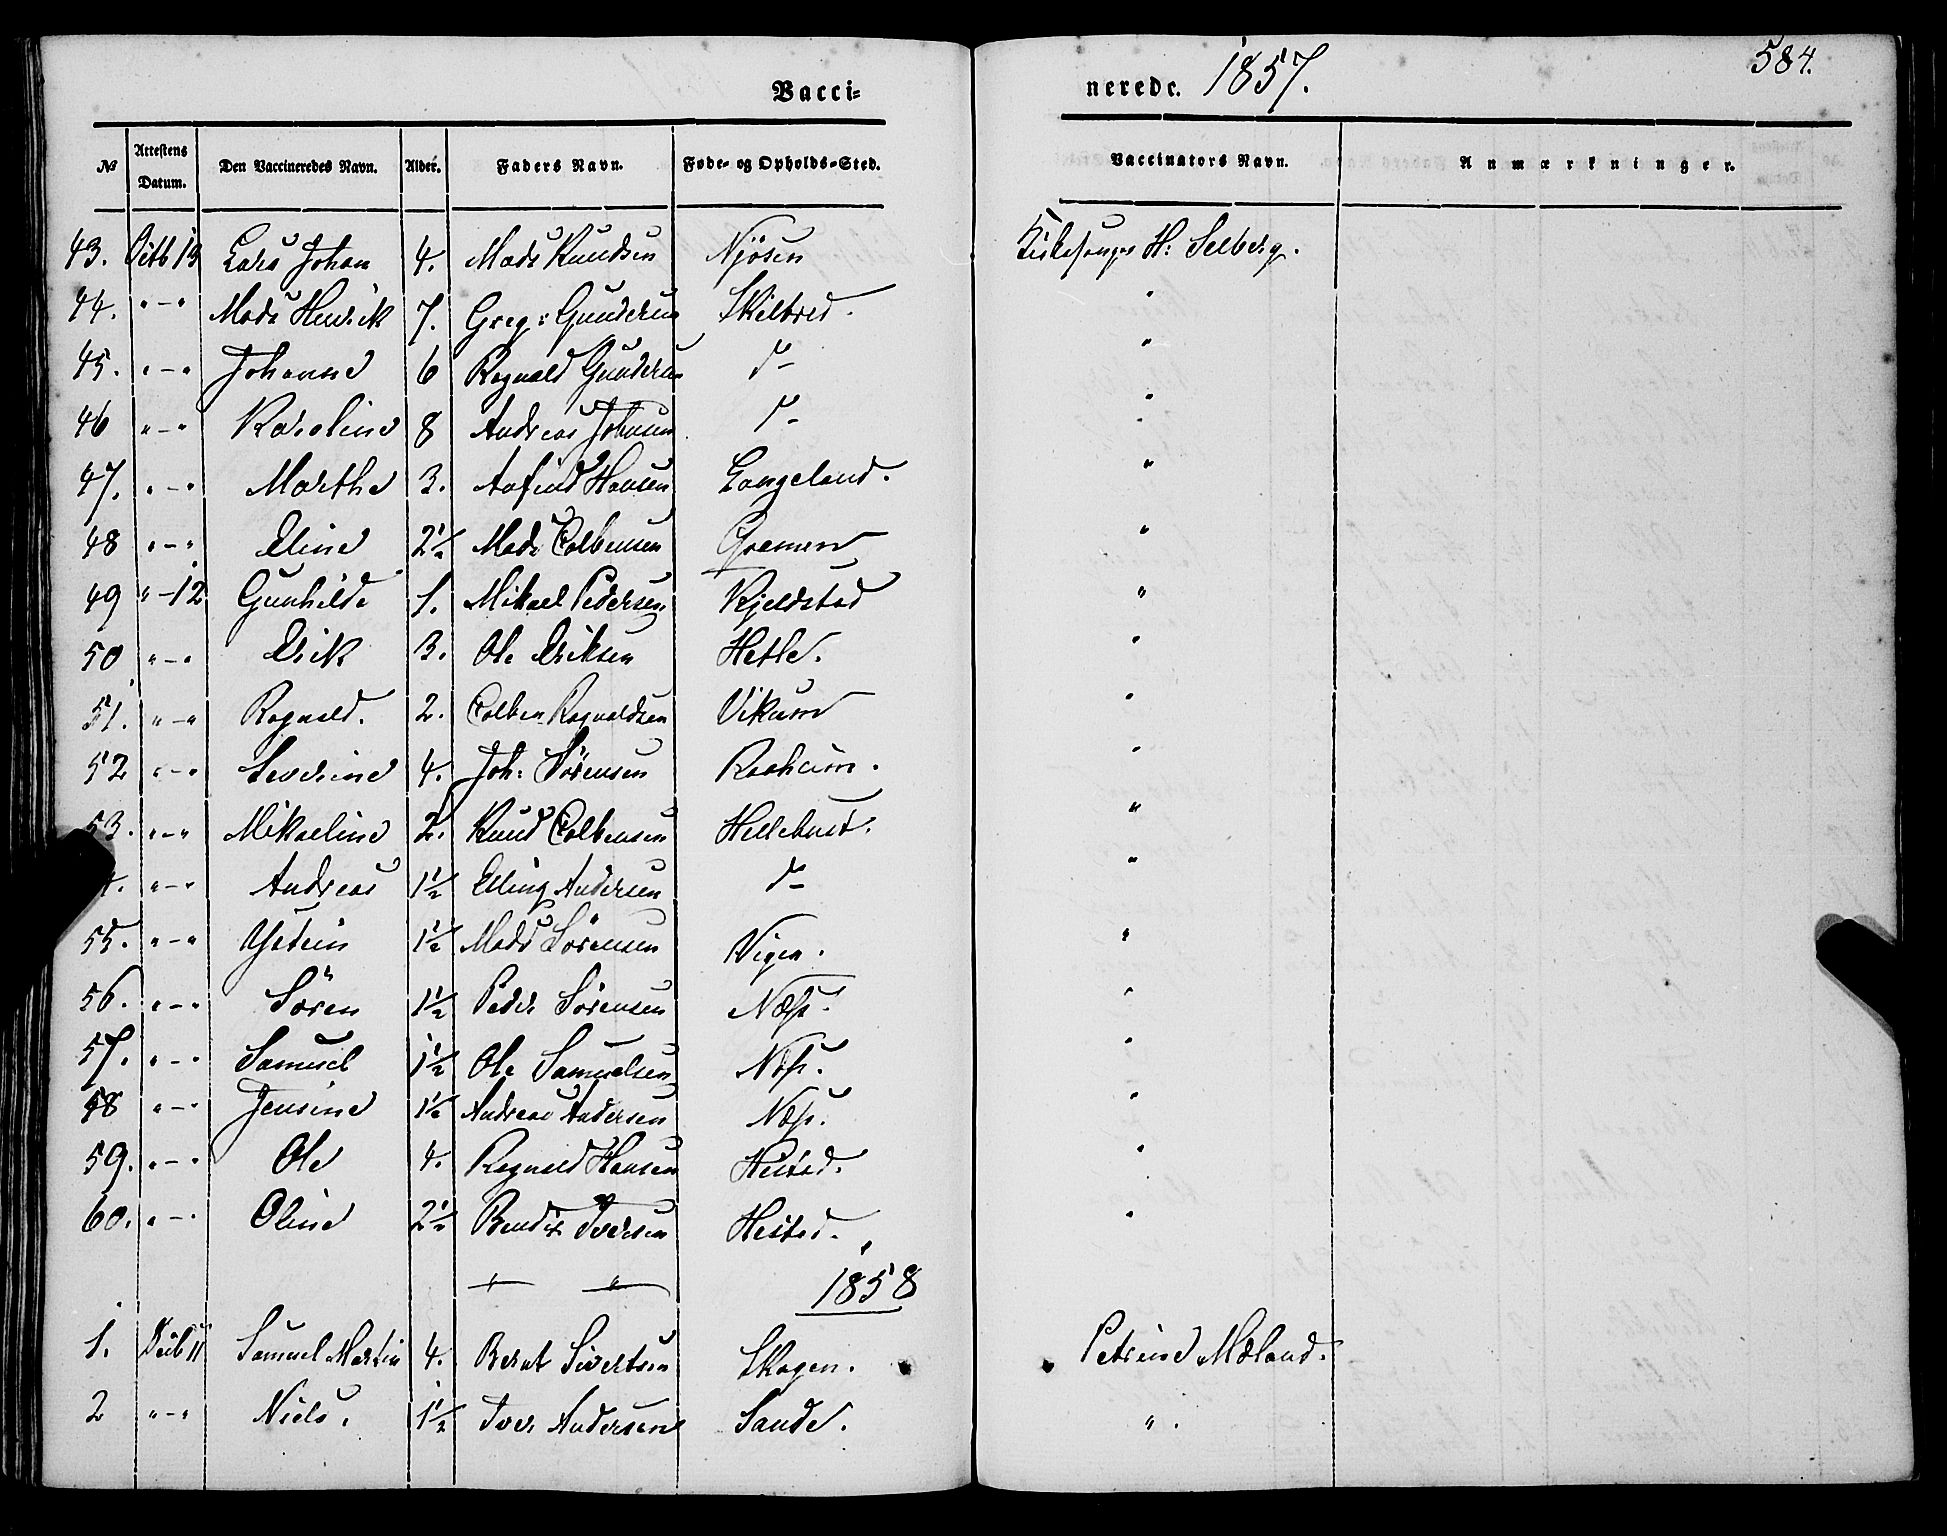 Vacci-
nerede. 1857.
584.
№ Attestens Datum. Den Vaccineredes Navn. Alder. Faders Navn. Føde- og Opholds-Sted. Vaccinators Navn. Anmærkninger.
43. Octb 13 Lars Johan 4. Mads Knudsen Njösen Kirkesanger H: Selberg.
44. " - " Mads Henrik 7. Greg: Gundersen Skilbred. "
45. " - " Johanne 6 Ragnald Gundersen d- "
46 " - " Karoline 8 Andreas Johnsen d- "
47. " - " Marthe 3. Anfind Hansen Langeland. "
48 " - " Eline 2½ Mads Colbensen "
49 " - 12 Gunhilde 1. Mikael Pedersen Kjeldstad "
50 " - " Erik 3. Ole Eriksen Hetle. "
51. " - " Ragnald. 2. Colben Ragnaldsen Vikum "
52 " - " Severine 4. Joh: Sörensen Raaheim. "
53. " - " Mikaeline 2. Knud Colbensen Hellebust. "
4. " - " Andreas 1½ Elling Andersen d- "
55. " - " Ystein 1½ Mads Sörensen Vigen. "
56. " - " Sören 1½ Peder Sörensen Næss. "
57. " - " Samuel 1½ Ole Samuelsen Næss. "
58 " - " Jensine 1½ Andreas Andersen Næss. "
59. " - " Ole 4. Ragnald Hansen Hestad. "
60. " - " Oline 2½ Bendix Iversen Hestad. "
" "
1858
1. 11 Samuel Martin 4. Bernt Sivertsen Skogen. Petrine Mæland.
2 " - " Niels. 1½ Iver Andersen Sande. "